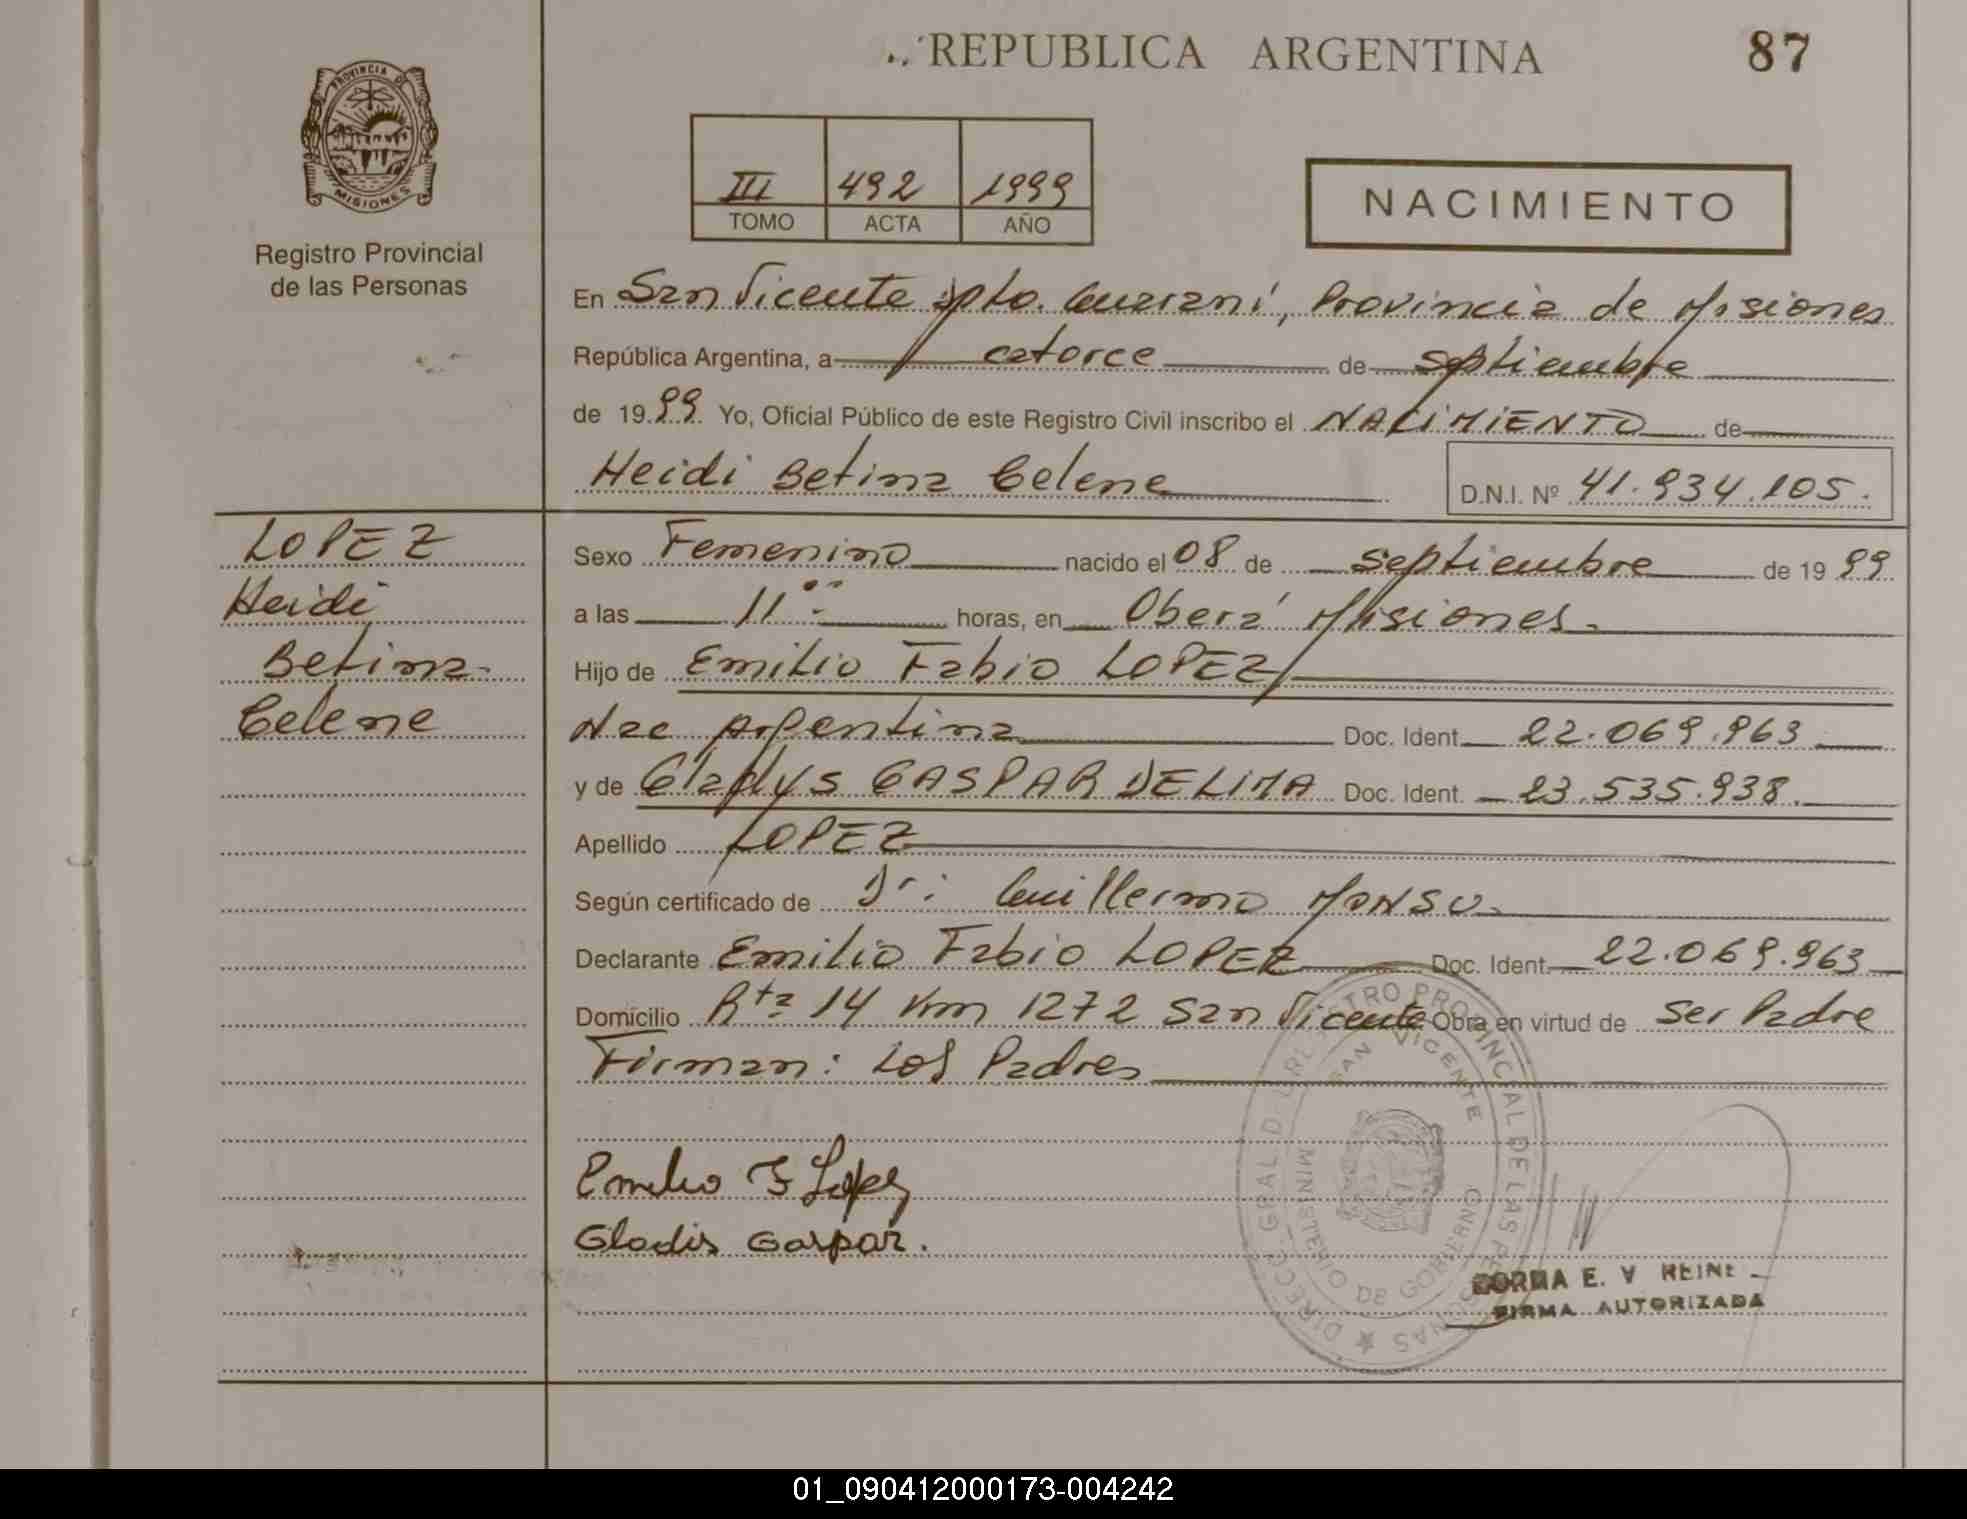 REPUBLICA ARGENTINA
87
PROVINCIA DE
MISIONES
Registro Provincial
de las Personas
III 492 1999
TOMO ACTA AÑO
NACIMIENTO
En San Vicente Dpto. Guarani, Provincia de Misiones
República Argentina, a catorce de septiembre
de 1999 Yo, Oficial Público de este Registro Civil inscribo el NACIMIENTO de
Heidi Betina Celene D.N.I. Nº 41.934.105.
LOPEZ
Heidi
Betina
Celene
Sexo Femenino nacido el 08 de septiembre de 1999
a las 11 horas, en Oberá Misiones.
Hijo de Emilio Fabio LOPEZ
Nac Argentina Doc. Ident. 22.069.963
y de Gladys GASPAR DELIMA Doc. Ident. 23.535.938.
Apellido LOPEZ
Según certificado de Dr: Guillermo
Declarante Emilio Fabio LOPEZ Doc. Ident. 22.069.963
Domicilio Rta 14 Km 1272 San Vicente Obra en virtud de Ser Padre
Firman: Los Padres
Emilio F Lopez
Gladis Gaspar.
DIRECC. GRAL. DEL REGISTRO PROVINCIAL DE LAS PERSONAS
SAN VICENTE
MINISTERIO DE GOBIERNO
E. V
FIRMA AUTORIZADA
01_090412000173-004242